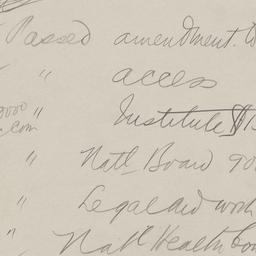 Passed amendment. to
" access
000 " Institute $15
com
" Natl Board 90
" Legal aid work
" Natl Health Con